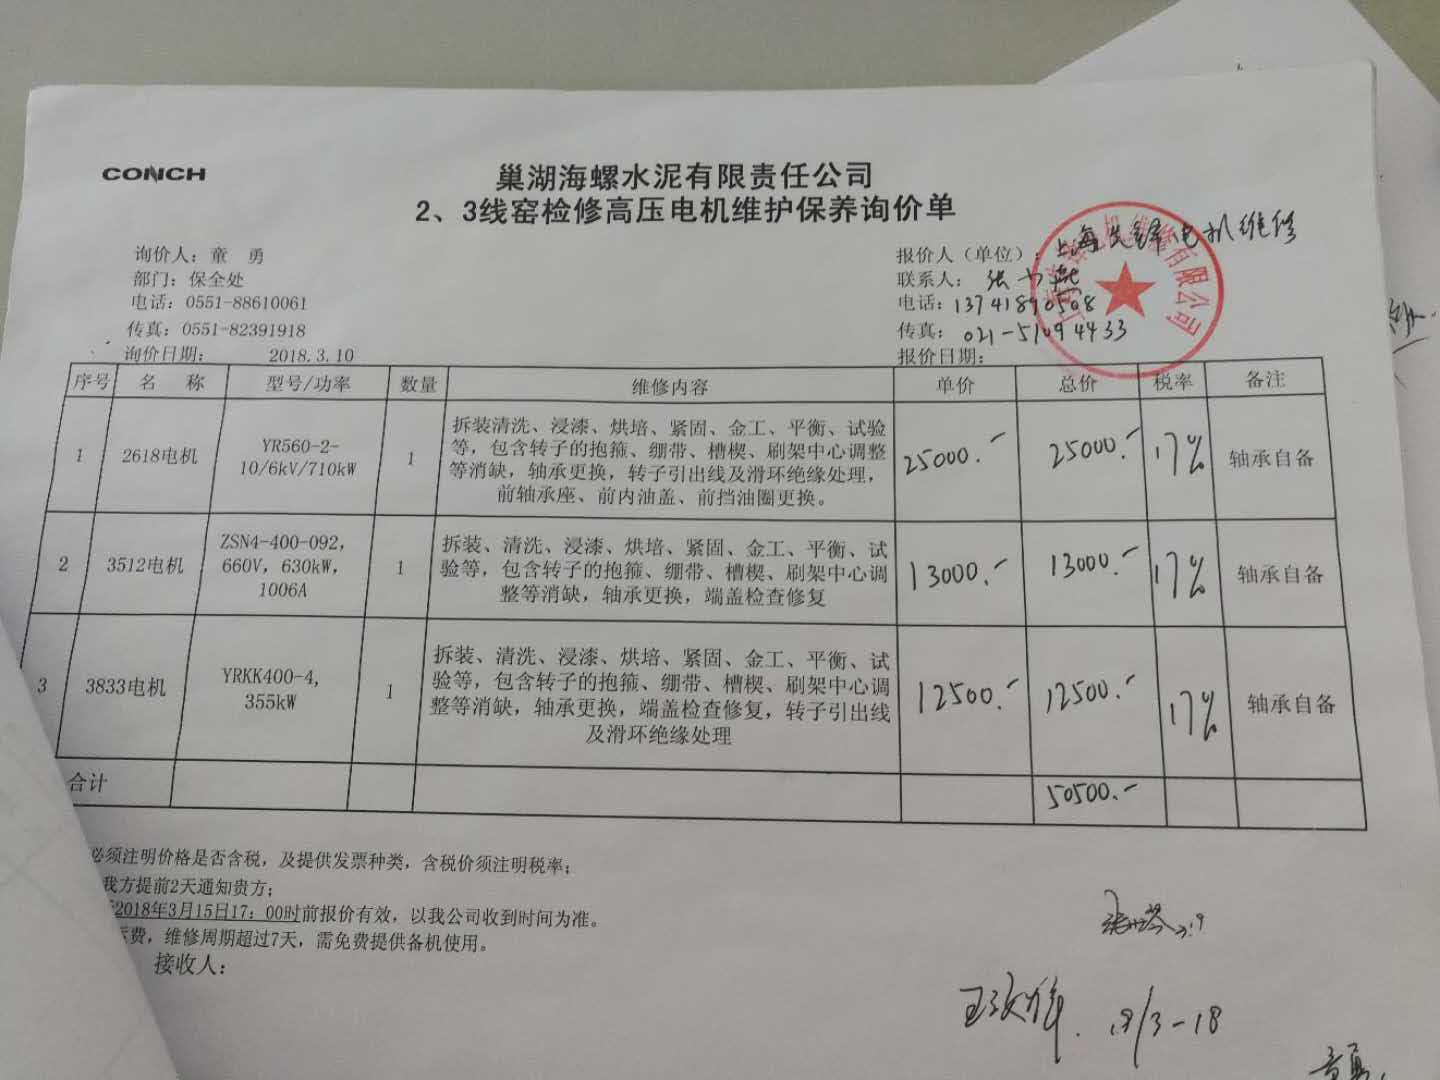 CONCH
巢湖海螺水泥有限责任公司
2、3线窑检修高压电机维护保养询价单
询价人：童 勇
部门：保全处
电话：0551-88610061
传真：0551-82391918
询价日期： 2018.3.10
报价人（单位）：上海 电机维修
联系人：张
电话：13741890508
传真：021-51094433
报价日期：
电机维修有限公司
序号 名 称 型号/功率 数量 维修内容 单价 总价 税率 备注
1 2618电机 YR560-2-
10/6kV/710kW 1 拆装清洗、浸漆、烘培、紧固、金工、平衡、试验
等，包含转子的抱箍、绷带、槽楔、刷架中心调整
等消缺，轴承更换，转子引出线及滑环绝缘处理，
前轴承座、前内油盖、前挡油圈更换。 25000.- 25000.- 17% 轴承自备
2 3512电机 ZSN4-400-092，
660V，630kW，
1006A 1 拆装、清洗、浸漆、烘培、紧固、金工、平衡、试
验等，包含转子的抱箍、绷带、槽楔、刷架中心调
整等消缺，轴承更换，端盖检查修复 13000.- 13000.- 17% 轴承自备
3 3833电机 YRKK400-4，
355kW 1 拆装、清洗、浸漆、烘培、紧固、金工、平衡、试
验等，包含转子的抱箍、绷带、槽楔、刷架中心调
整等消缺，轴承更换，端盖检查修复，转子引出线
及滑环绝缘处理 12500.- 12500.- 17% 轴承自备
合计 50500.-
必须注明价格是否含税，及提供发票种类，含税价须注明税率；
我方提前2天通知贵方；
2018年3月15日17：00时前报价有效，以我公司收到时间为准。
费，维修周期超过7天，需免费提供备机使用。
接收人：
18/3-18
童勇